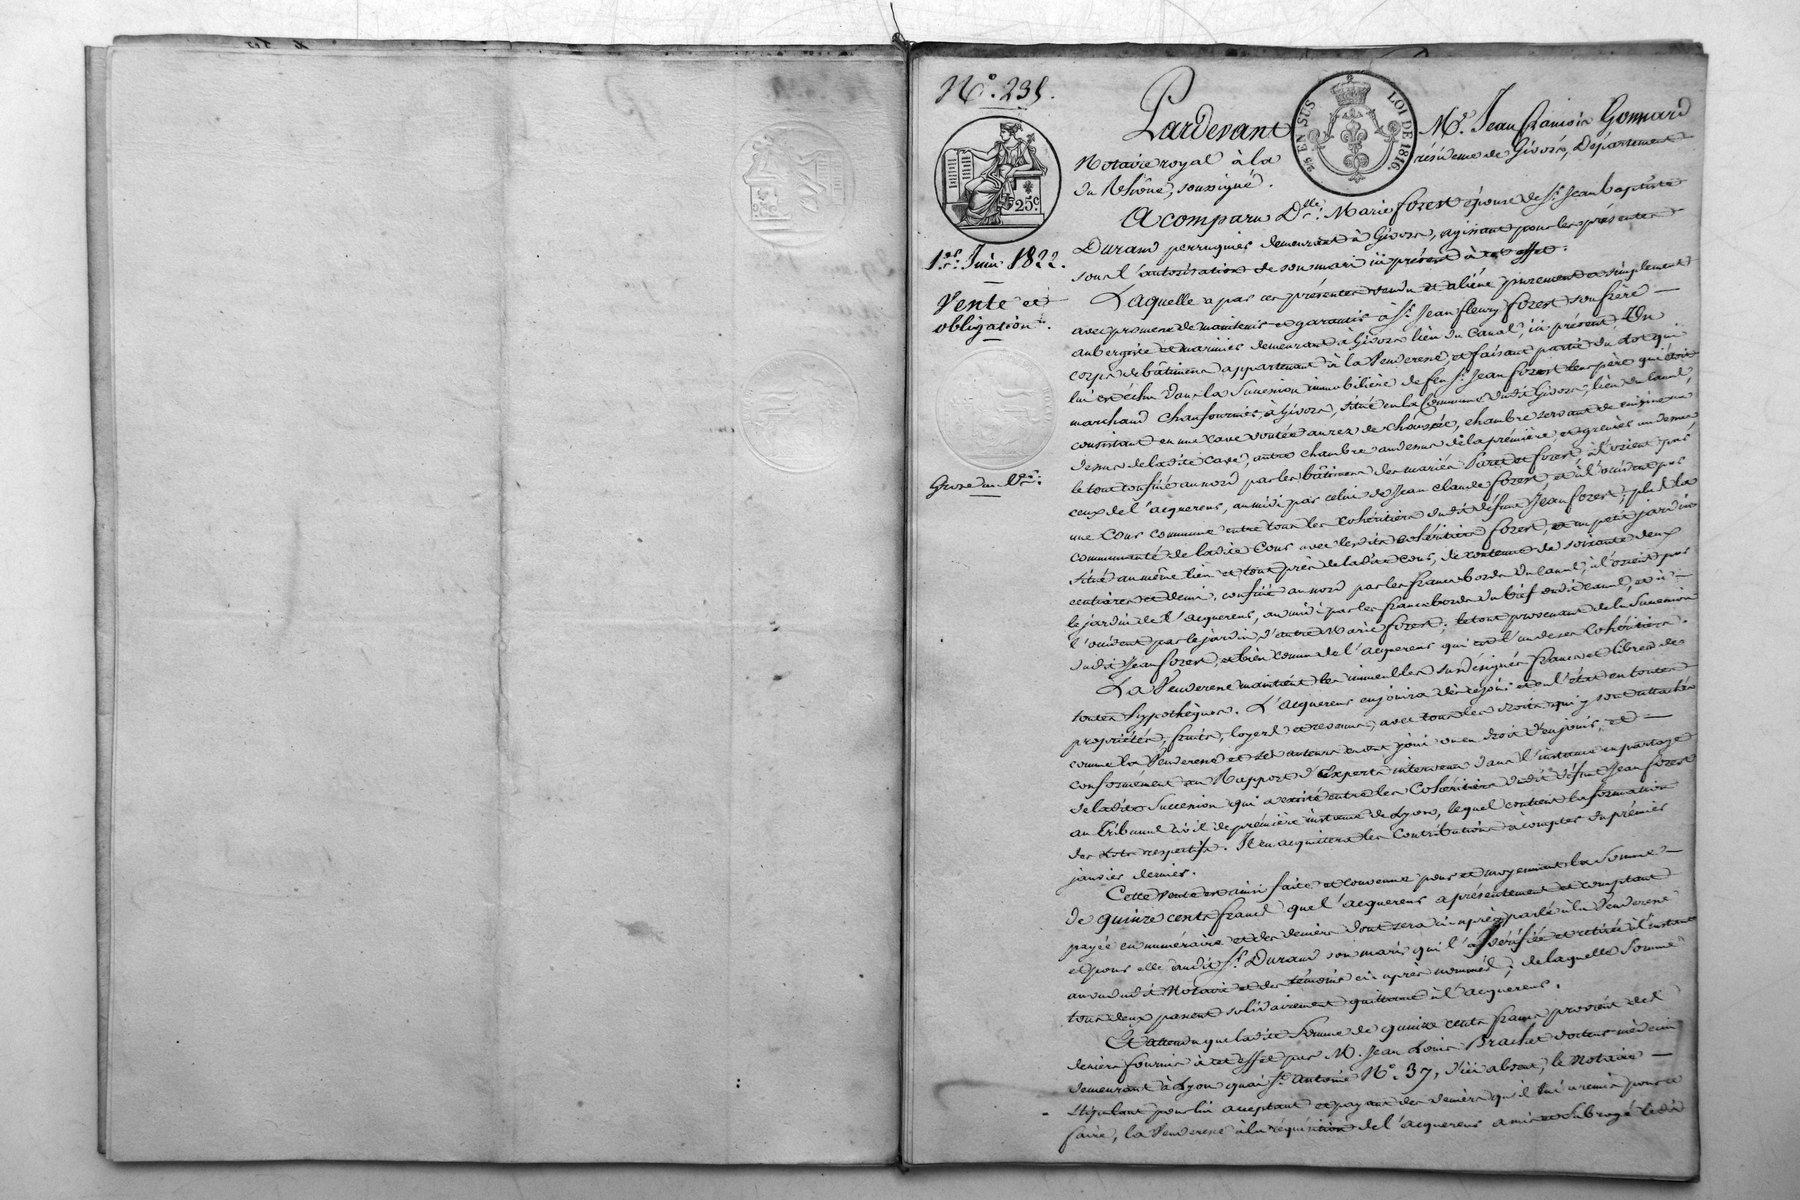 N.° 235.
25 EN SUS
LOI DE 1816.
25c.
1.er Juin 1822.
Vente et
obligation.
Grosse
Pardevant M.e Jean François Gonnard
Notaire royal à la résidence de Givors, Département
du Rhône, soussigné.
A comparu D.lle Marie forest épouse de S.r Jean baptiste
Durand perruquier demeurant à Givors, agissant pour les présentes
sous l'autorisation de son mari ici présent à cet effet.
Laquelle a par ces présentes vendu et aliéné purement et simplement
avec promesse de maintenir et garantir à S.r Jean fleury forest son frère
aubergiste et marinier demeurant à Givors lieu du Canal, ici présent, Un
corps de bâtiment appartenant à la Venderesse, et faisant partie du lot qui
lui est échu dans la Succession immobilière de feu S.r Jean forest leur père qui était
marchand chaufournier à Givors, situé en la Commune dudit Givors, lieu du Canal,
consistant en une cave voutée au rez de chaussée, chambre servant de cuisine au
dessus de ladite cave, autre chambre au dessus de la première et grenier au dessus
le tout confiné au nord par les bâtiments des mariés et forest à l'orient par
ceux de l'acquereur, au midi par celui de Jean Claude forest, et à l'occident par
une Cour commune entre tous les cohéritiers dudit défunt Jean forest, plus la
communauté de ladite Cour avec lesdits cohéritiers forest, et un petit jardin
situé au même lieu et tout près de ladite cour, de contenue de soixante deux
centiares et demi, confiné au nord par les francs bords du Canal, à l'orient par
le jardin de l'acquereur, au midi par les francs bords du bief dudit Canal, et à
l'occident par le jardin d'autre Marie forest; le tout provenant de la Succession
dudit Jean forest, et bien connu de l'acquereur qui est l'un de ses Cohéritiers.
La Venderesse maintient les immeubles susdésignés francs et libres de
toutes hypothèques. L'acquereur en jouira dès ce jour et en l'état en toutes
propriétés, fruits, loyers et revenus, avec tous les droits qui y sont attachés
comme la Venderesse et ses auteurs en ont joui ou eu droit d'en jouir, et
conformément au Rapport d'Experts intervenu dans l'instance en partage
de ladite Succession qui a existé entre les Cohéritiers dudit défunt Jean forest
au Tribunal civil de première instance de Lyon, lequel contient la formation
des lots respectifs. Il en acquittera les Contributions à compter du premier
janvier dernier.
Cette vente est ainsi faite et convenue pour et moyennant la Somme
de quinze cents francs que l'acquereur a présentement et comptant
payée en numéraire et des deniers dont sera ci après parlé à la Venderesse
et pour elle audit S.r Durand son mari qui l'a vérifiée et retirée à l'instant
au vu dudit Notaire et des témoins ci après nommés; de laquelle Somme
tous deux passent solidairement quittance à l'acquereur.
Et attendu que ladite Somme de quinze cents francs provient des
deniers fournis à cet effet par M. Jean Louis Brachet docteur médecin
demeurant à Lyon quai S.t Antoine N.° 37, d'ici absent, le Notaire
stipulant pour lui acceptant et payant des deniers qu'il lui a remis pour ce
faire, la Venderesse à la réquisition de l'acquereur a mis et subrogé ledit